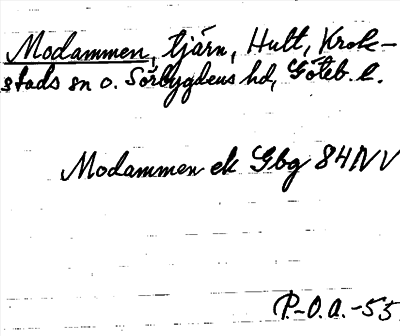 Modammen, tjärn, Hult, Krok-
stads sn o. Sörbygdens hd, Göteb. l.
Modammen ek Gbg 84 NV
P-O.A.-55